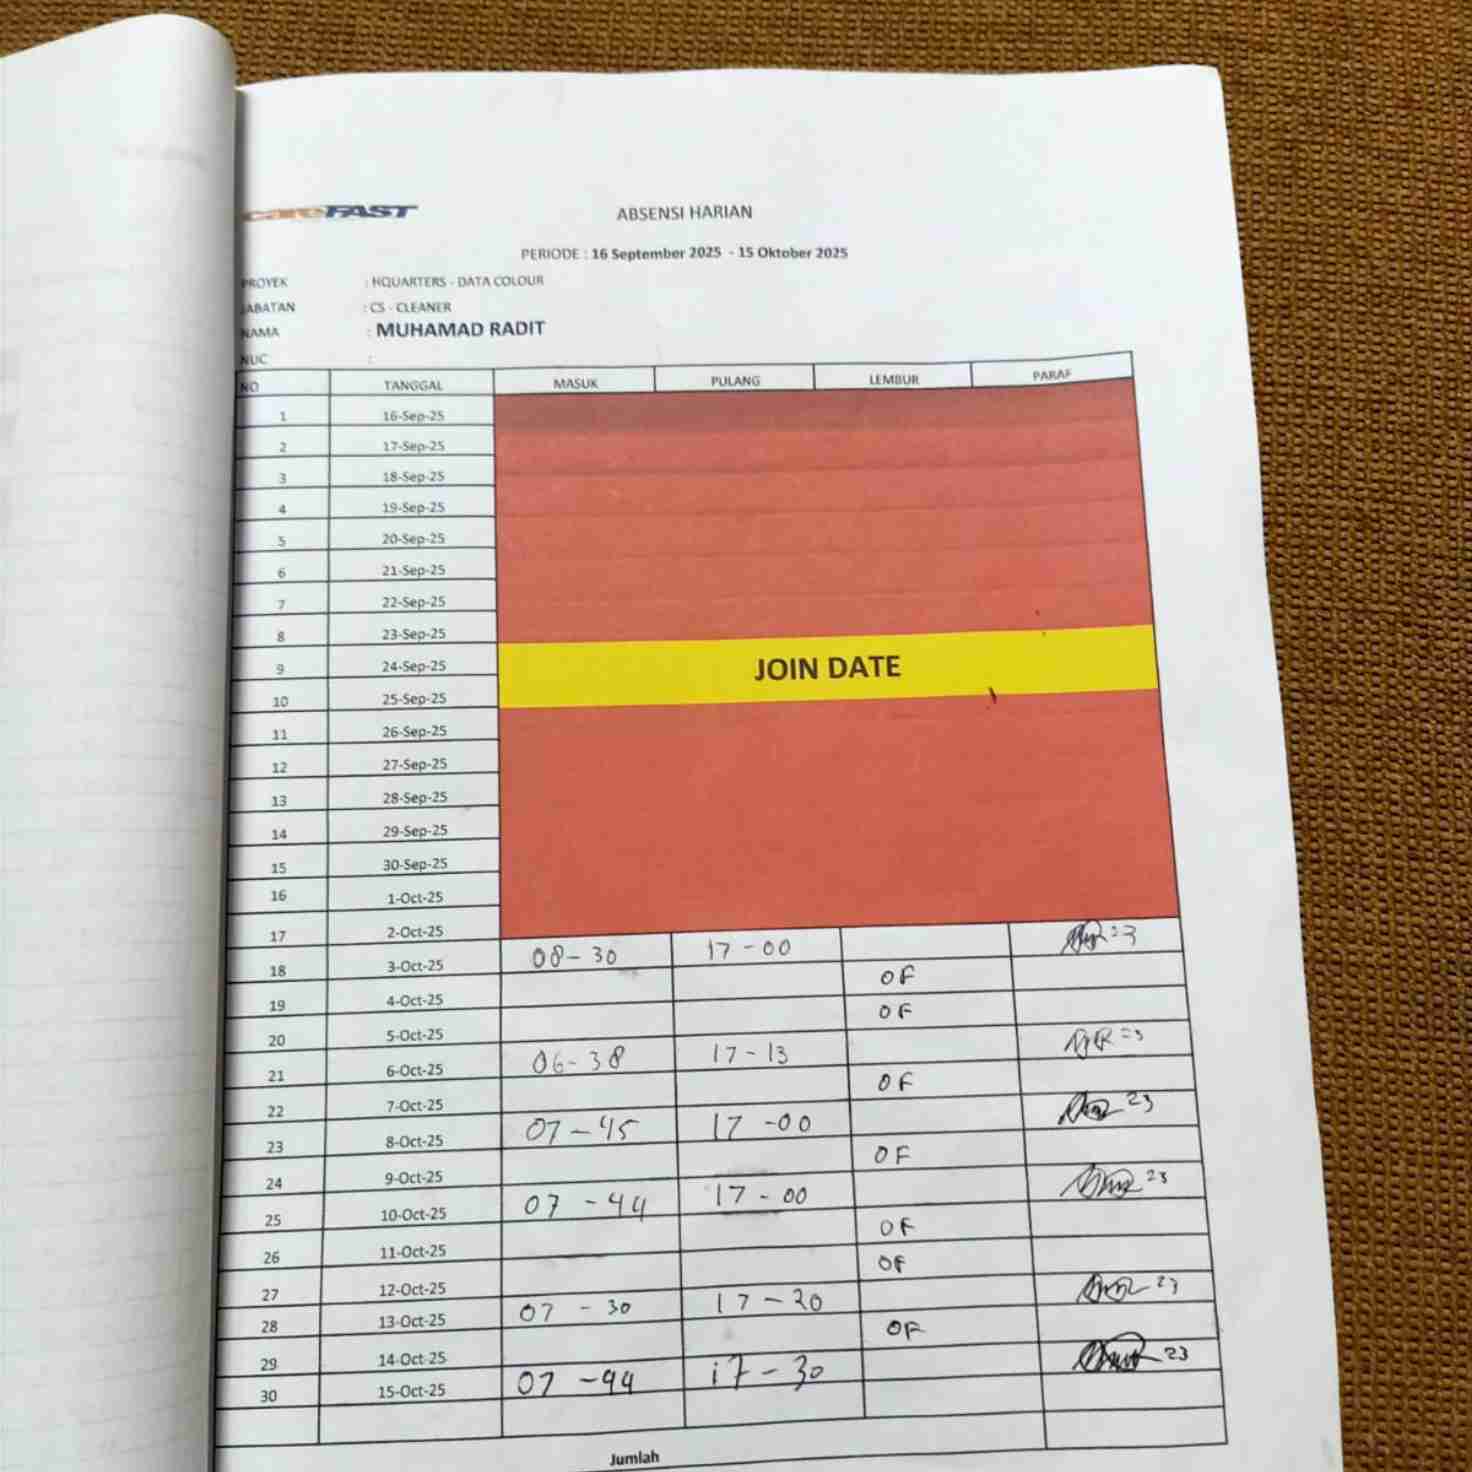 careFAST
ABSENSI HARIAN
PERIODE : 16 September 2025 - 15 Oktober 2025
PROYEK : HQUARTERS - DATA COLOUR
JABATAN : CS - CLEANER
NAMA : MUHAMAD RADIT
NUC :
NO TANGGAL MASUK PULANG LEMBUR PARAF
1 16-Sep-25
2 17-Sep-25
3 18-Sep-25
4 19-Sep-25
5 20-Sep-25
6 21-Sep-25
7 22-Sep-25
8 23-Sep-25
9 24-Sep-25 JOIN DATE
10 25-Sep-25
11 26-Sep-25
12 27-Sep-25
13 28-Sep-25
14 29-Sep-25
15 30-Sep-25
16 1-Oct-25
17 2-Oct-25
18 3-Oct-25 08-30 17-00
19 4-Oct-25 OF
20 5-Oct-25 OF
21 6-Oct-25 06-38 17-13
22 7-Oct-25 OF
23 8-Oct-25 07-45 17-00 23
24 9-Oct-25 OF
25 10-Oct-25 07-44 17-00 23
26 11-Oct-25 OF
27 12-Oct-25 OF
28 13-Oct-25 07-30 17-20 23
29 14-Oct-25 OF
30 15-Oct-25 07-44 17-30 23
Jumlah